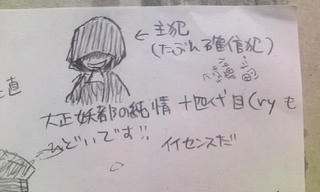 ←主犯
(たぶん確信犯)
大正妖都の純情十四代目(ry も
ひどいです!!
イイセンスだ
直